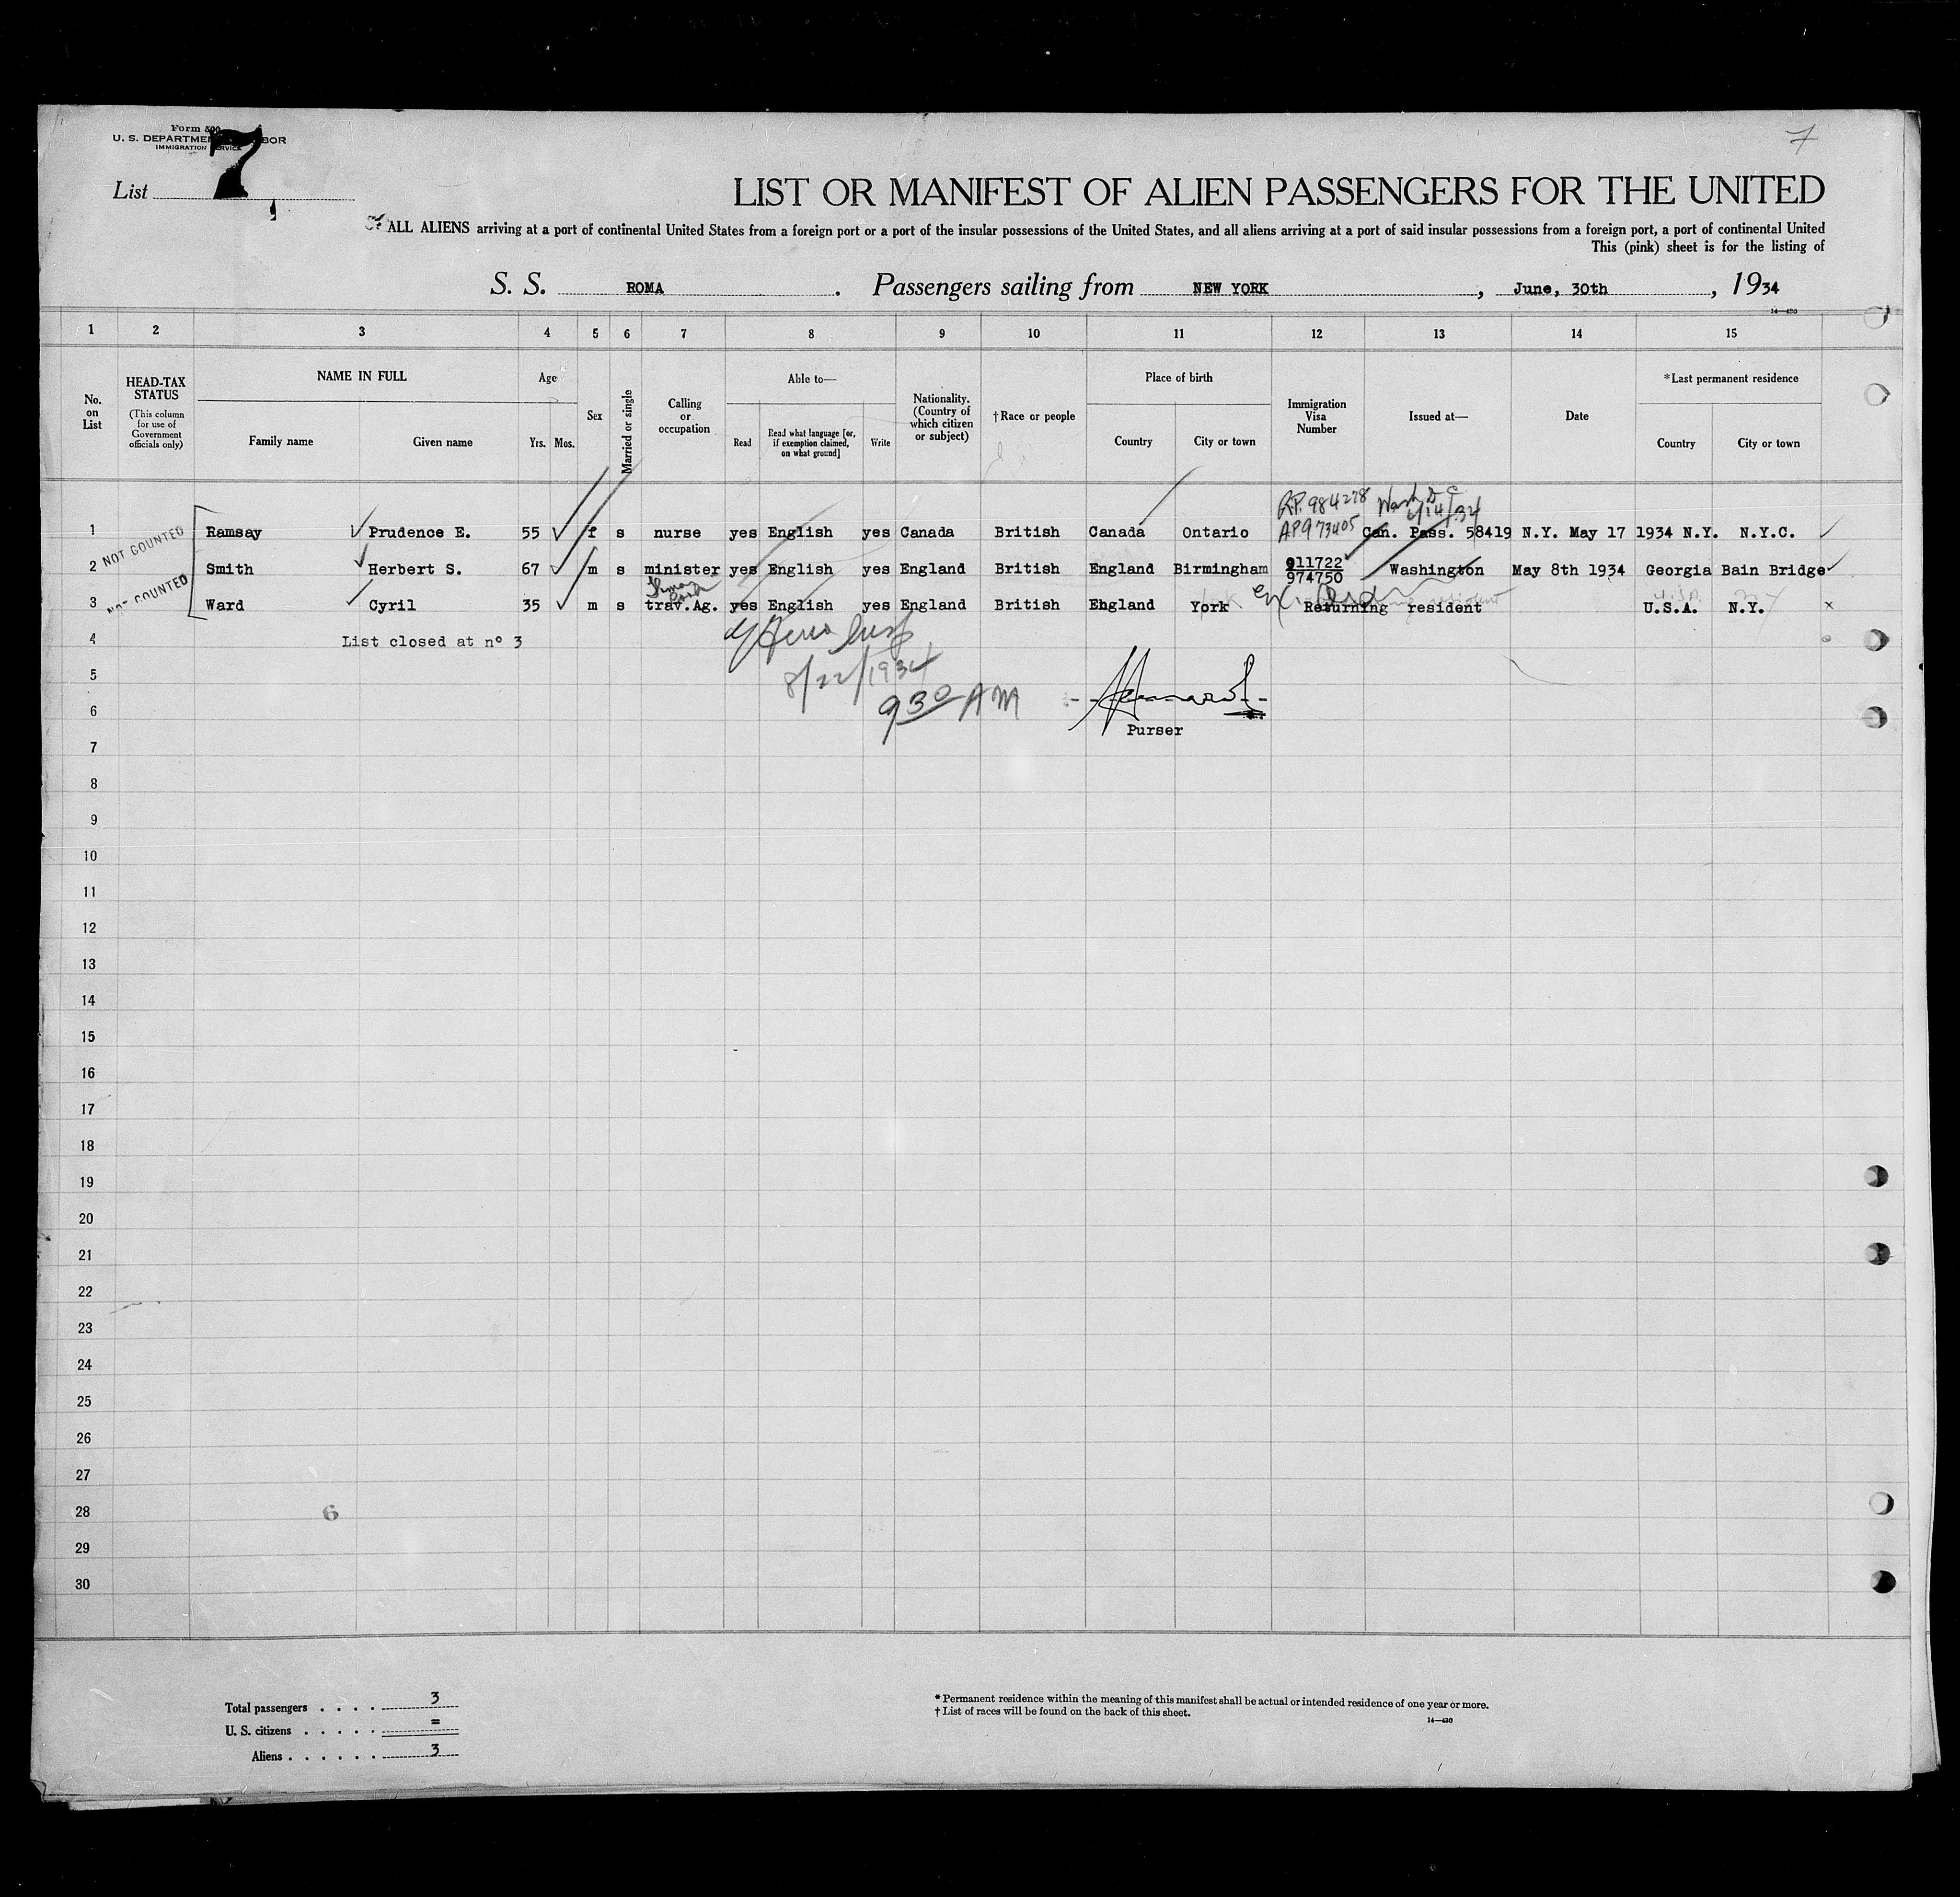 Form 500
U. S. DEPARTMENT LABOR
IMMIGRATION SERVICE
7
7
List
LIST OR MANIFEST OF ALIEN PASSENGERS FOR THE UNITED
ALL ALIENS arriving at a port of continental United States from a foreign port or a port of the insular possessions of the United States, and all aliens arriving at a port of said insular possessions from a foreign port, a port of continental United
This (pink) sheet is for the listing of
S. S. ROMA. Passengers sailing from NEW YORK, June, 30th, 1934
14—430
1 2 3 4 5 6 7 8 9 10 11 12 13 14 15
No. on List
HEAD-TAX STATUS (This column for use of Government officials only)
NAME IN FULL
Family name Given name
Age
Yrs. Mos.
Sex
Married or single
Calling or occupation
Able to—
Read Read what language [or, if exemption claimed, on what ground] Write
Nationality. (Country of which citizen or subject)
†Race or people
Place of birth
Country City or town
Immigration Visa Number
Issued at—
Date
*Last permanent residence
Country City or town
R.P. 984278 Wash D C
A.P. 973405 6/14/34
1 NOT COUNTED Ramsay Prudence E. 55 f s nurse yes English yes Canada British Canada Ontario Can. Pass. 58419 N.Y. May 17 1934 N.Y. N.Y.C.
2 Smith Herbert S. 67 m s minister yes English yes England British England Birmingham 911722 974750 Washington May 8th 1934 Georgia Bain Bridge
3 NOT COUNTED Ward Cyril 35 m s trav.Ag. yes English yes England British England York Returning resident U.S.A. N.Y. x
4 List closed at n° 3
8/22/1934
9 30 AM
Purser
5
6
7
8
9
10
11
12
13
14
15
16
17
18
19
20
21
22
23
24
25
26
27
28 6
29
30
Total passengers . . . . 3
U. S. citizens . . . . . =
Aliens . . . . . . 3
* Permanent residence within the meaning of this manifest shall be actual or intended residence of one year or more.
† List of races will be found on the back of this sheet.
14—430